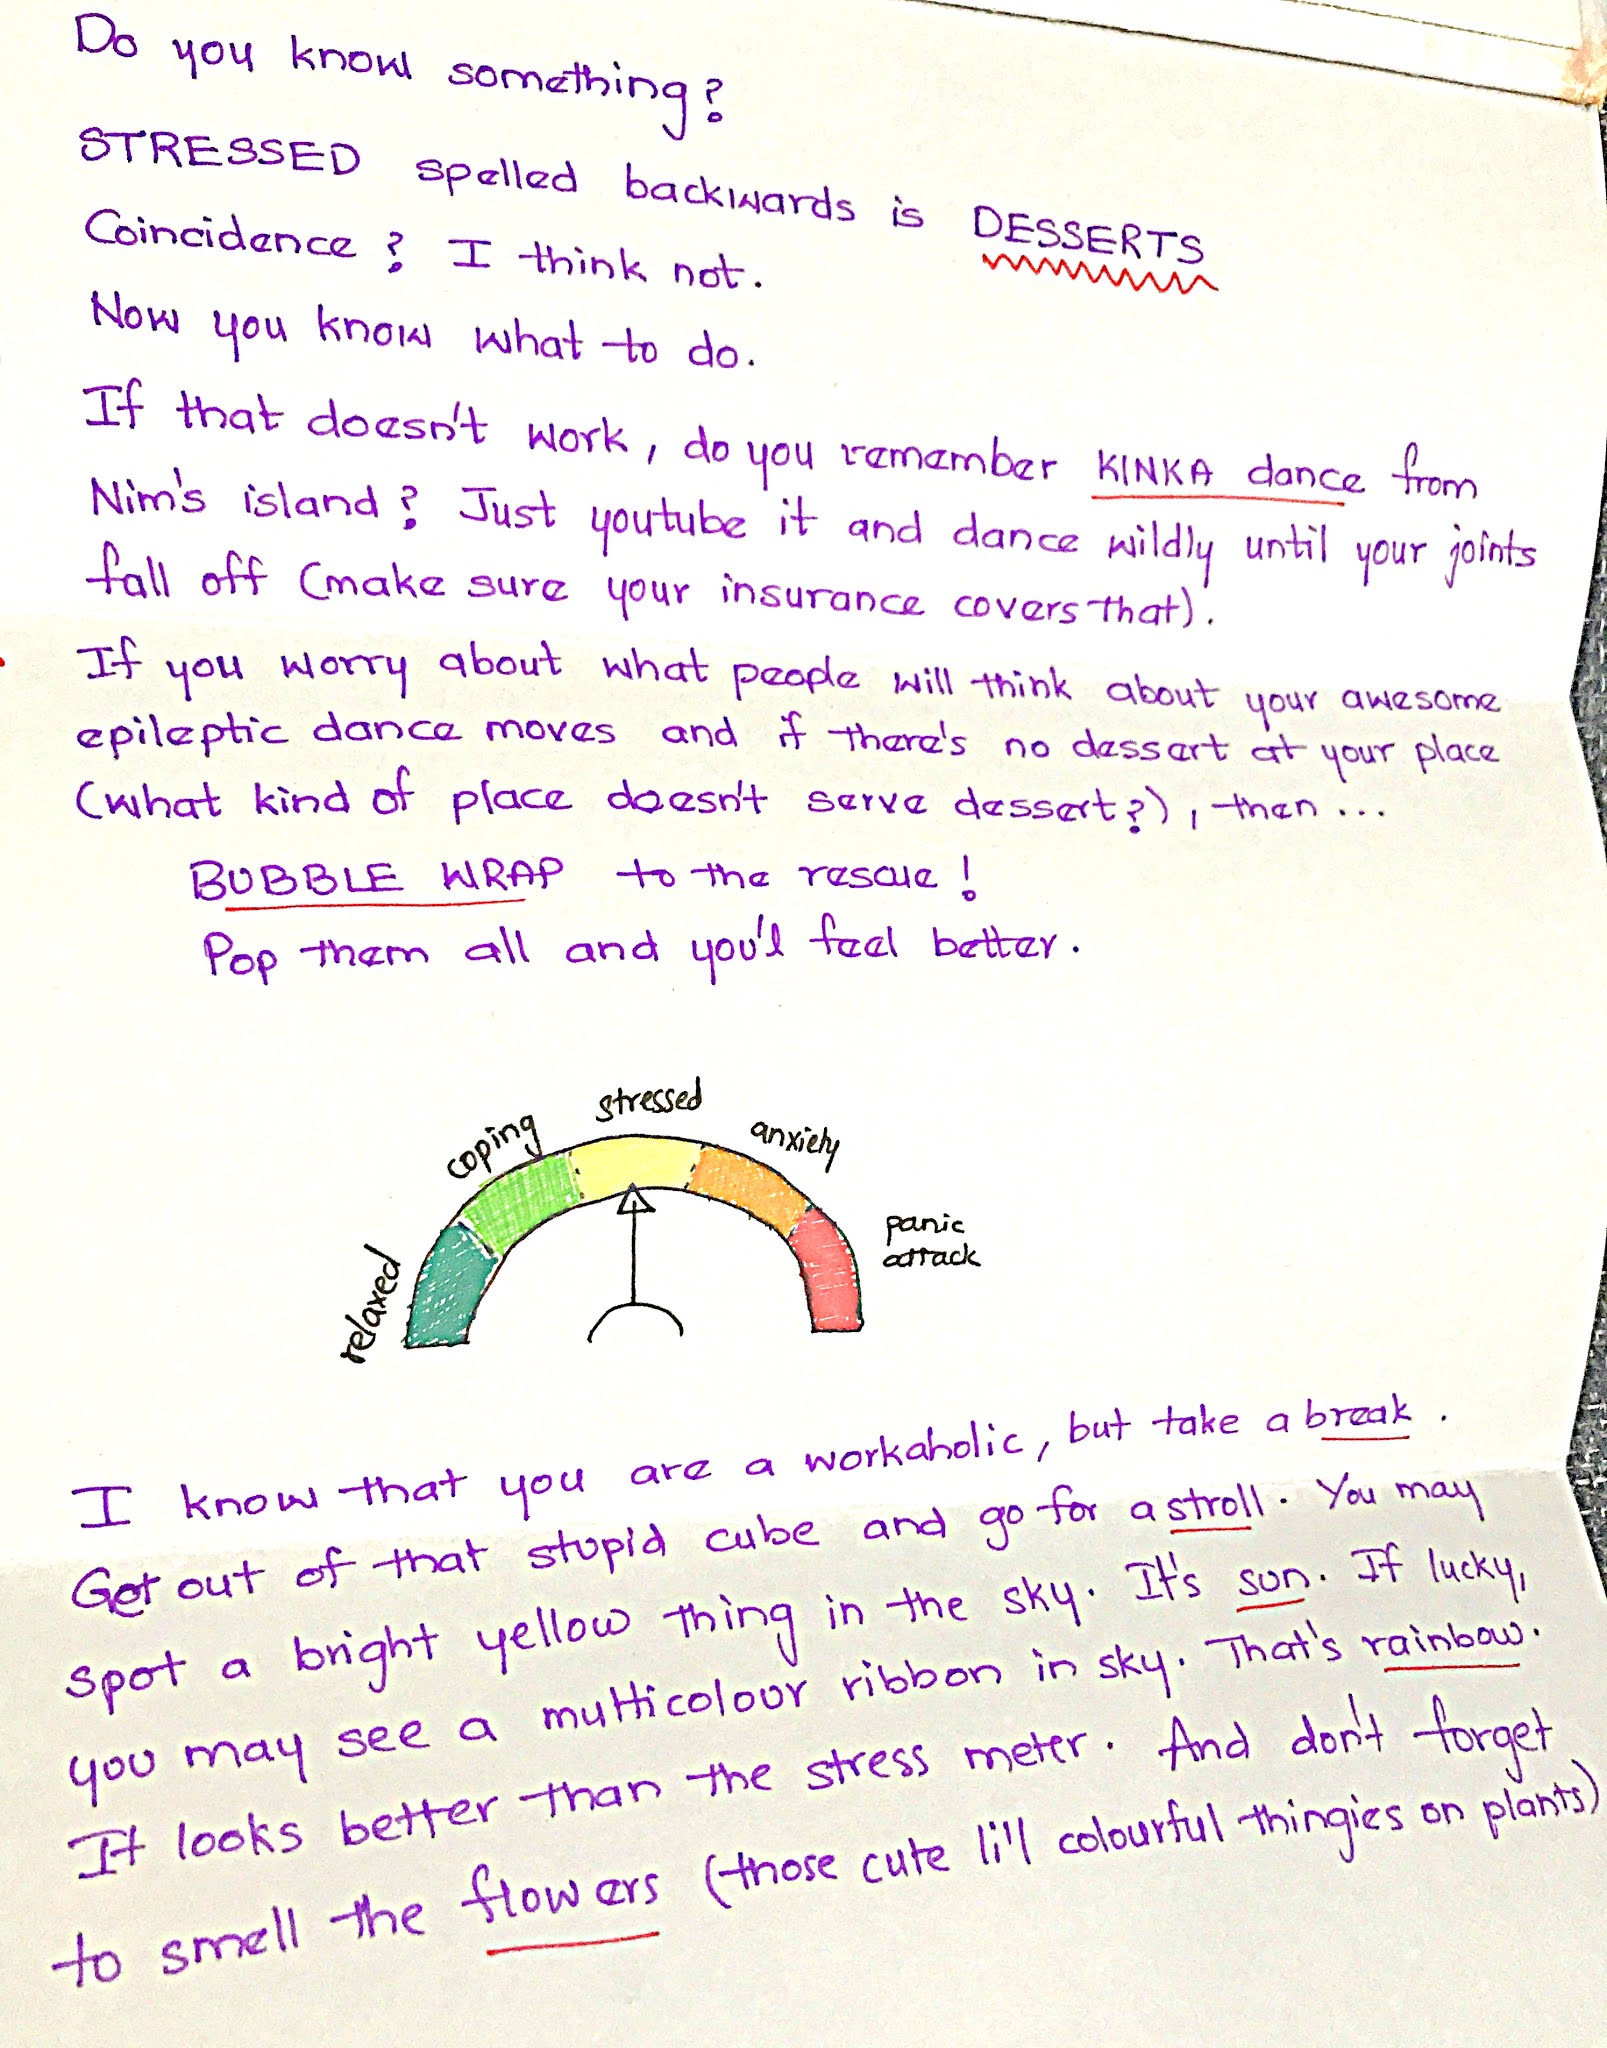 Do you know something?
STRESSED spelled backwards is DESSERTS
Coincidence? I think not.
Now you know what to do.
If that doesn't work, do you remember KINKA dance from
Nim's island? Just youtube it and dance wildly until your joints
fall off (make sure your insurance covers that).
If you worry about what people will think about your awesome
epileptic dance moves and if there's no dessert at your place
(what kind of place doesn't serve dessert?), then ...
BUBBLE WRAP to the rescue!
Pop them all and you'l feel better.
stressed
coping
anxiety
panic
attack
relaxed
I know that you are a workaholic, but take a break.
Get out of that stupid cube and go for a stroll. You may
spot a bright yellow thing in the sky. It's sun. If lucky,
you may see a multicolour ribbon in sky. That's rainbow.
It looks better than the stress meter. And don't forget
to smell the flowers (those cute li'l colourful thingies on plants)